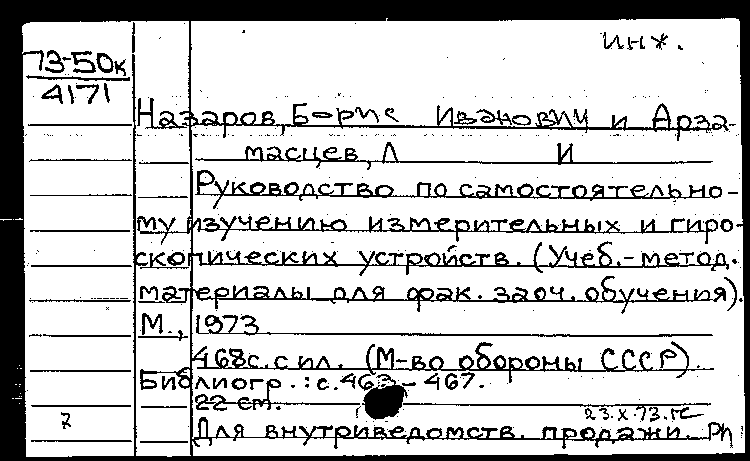 инж.
73-50к
4171
Назаров, Борис Иванович и Арза-
масцев, Л И
Руководство по самостоятельно-
му изучению измерительных и гиро-
скопических устройств. (Учеб.-метод.
материалы для фак. заоч. обучения).
М., 1973.
468с. с ил. (М-во обороны СССР).
Библиогр.: с. 463-467.
22 cm.
23.X.73.
Для внутриведомств. продажи.